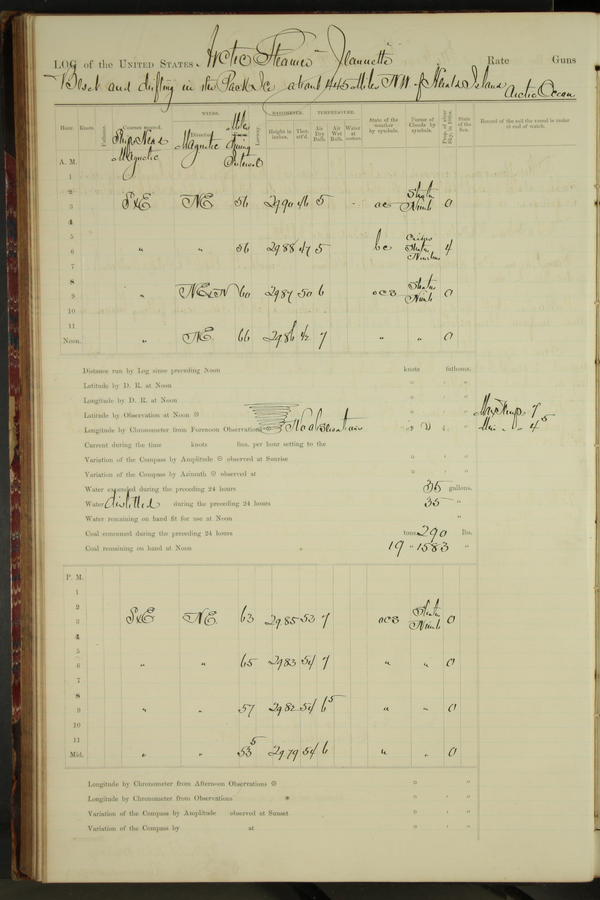 LOG of the UNITED STATES Arctic Steamer Jeannette Rate Guns
Beset and drifting in the Pack Ice about 445 Miles NW of Heralds Island Arctic Ocean
WINDS. BAROMETER. TEMPERATURE.
Hour. Knots. Fathoms. Courses steered. Ships Head Magnetic Direction Magnetic Miles during Interval Leeway. Height in inches. Ther. att'd. Air Dry Bulb. Air Wet Bulb. Water at surface. State of the weather by symbols. Forms of Clouds by symbols. Prop. of clear Sky, in 10ths. State of the Sea. Record of the sail the vessel is under at end of watch.
A. M.
1
2
3 SxE NE 56 2990 46 5 oc Strat Nimb 0
4
5
6 " " 56 2988 47 5 bc Strat 4
7
8
9 " NExN 60 2987 50 6 ocs Strat Nimb 0
10
11
Noon. " NE 66 2986 7 " " 0
Distance run by Log since preceding Noon knots fathoms.
Latitude by D. R. at Noon ° ' "
Longitude by D. R. at Noon ° ' "
Latitude by Observation at Noon ° ' " Max Temp 7
Longitude by Chronometer from Forenoon Observations No observation ° ' " Min " " 4 5
Current during the time knots fms. per hour setting to the
Variation of the Compass by Amplitude observed at Sunrise ° ' "
Variation of the Compass by Azimuth observed at ° ' "
Water expended during the preceding 24 hours 35 gallons.
Water distilled during the preceding 24 hours 35 "
Water remaining on hand fit for use at Noon "
Coal consumed during the preceding 24 hours tons 290 lbs.
Coal remaining on hand at Noon 19 " 1583 "
P. M.
1
2
3 SxE NE 63 2985 53 7 ocs Strat Nimb 0
4
5
6 " " 65 2983 54 7 " " 0
7
8
9 " " 57 2982 54 6 5 " " 0
10
11
Mid. " " 53 5 2979 54 6 " " 0
Longitude by Chronometer from Afternoon Observations ° ' "
Longitude by Chronometer from Observations * ° ' "
Variation of the Compass by Amplitude observed at Sunset ° ' "
Variation of the Compass by at ° ' "